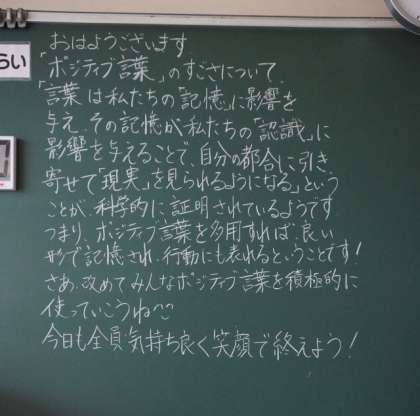 おはようございます
「ポジティブ言葉」のすごさについて
「言葉は私たちの「記憶」に影響を
与え、その記憶が私たちの「認識」に
影響を与えることで、自分の都合に引き
寄せて「現実」を見られるようになる」とい
うことが、科学的に証明されているようです
つまり、ポジティブ言葉を多用すれば、良い
形で記憶され、行動にも表れるということです!
さあ、改めてみんなポジティブ言葉を積極的に
使っていこうね〜
今日も全員気持ち良く笑顔で終えよう!
らい